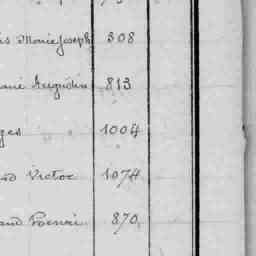 is Marie Joseph 308
arie Augustin 813
ges 1004
rd Victor 1074
and Henri 870